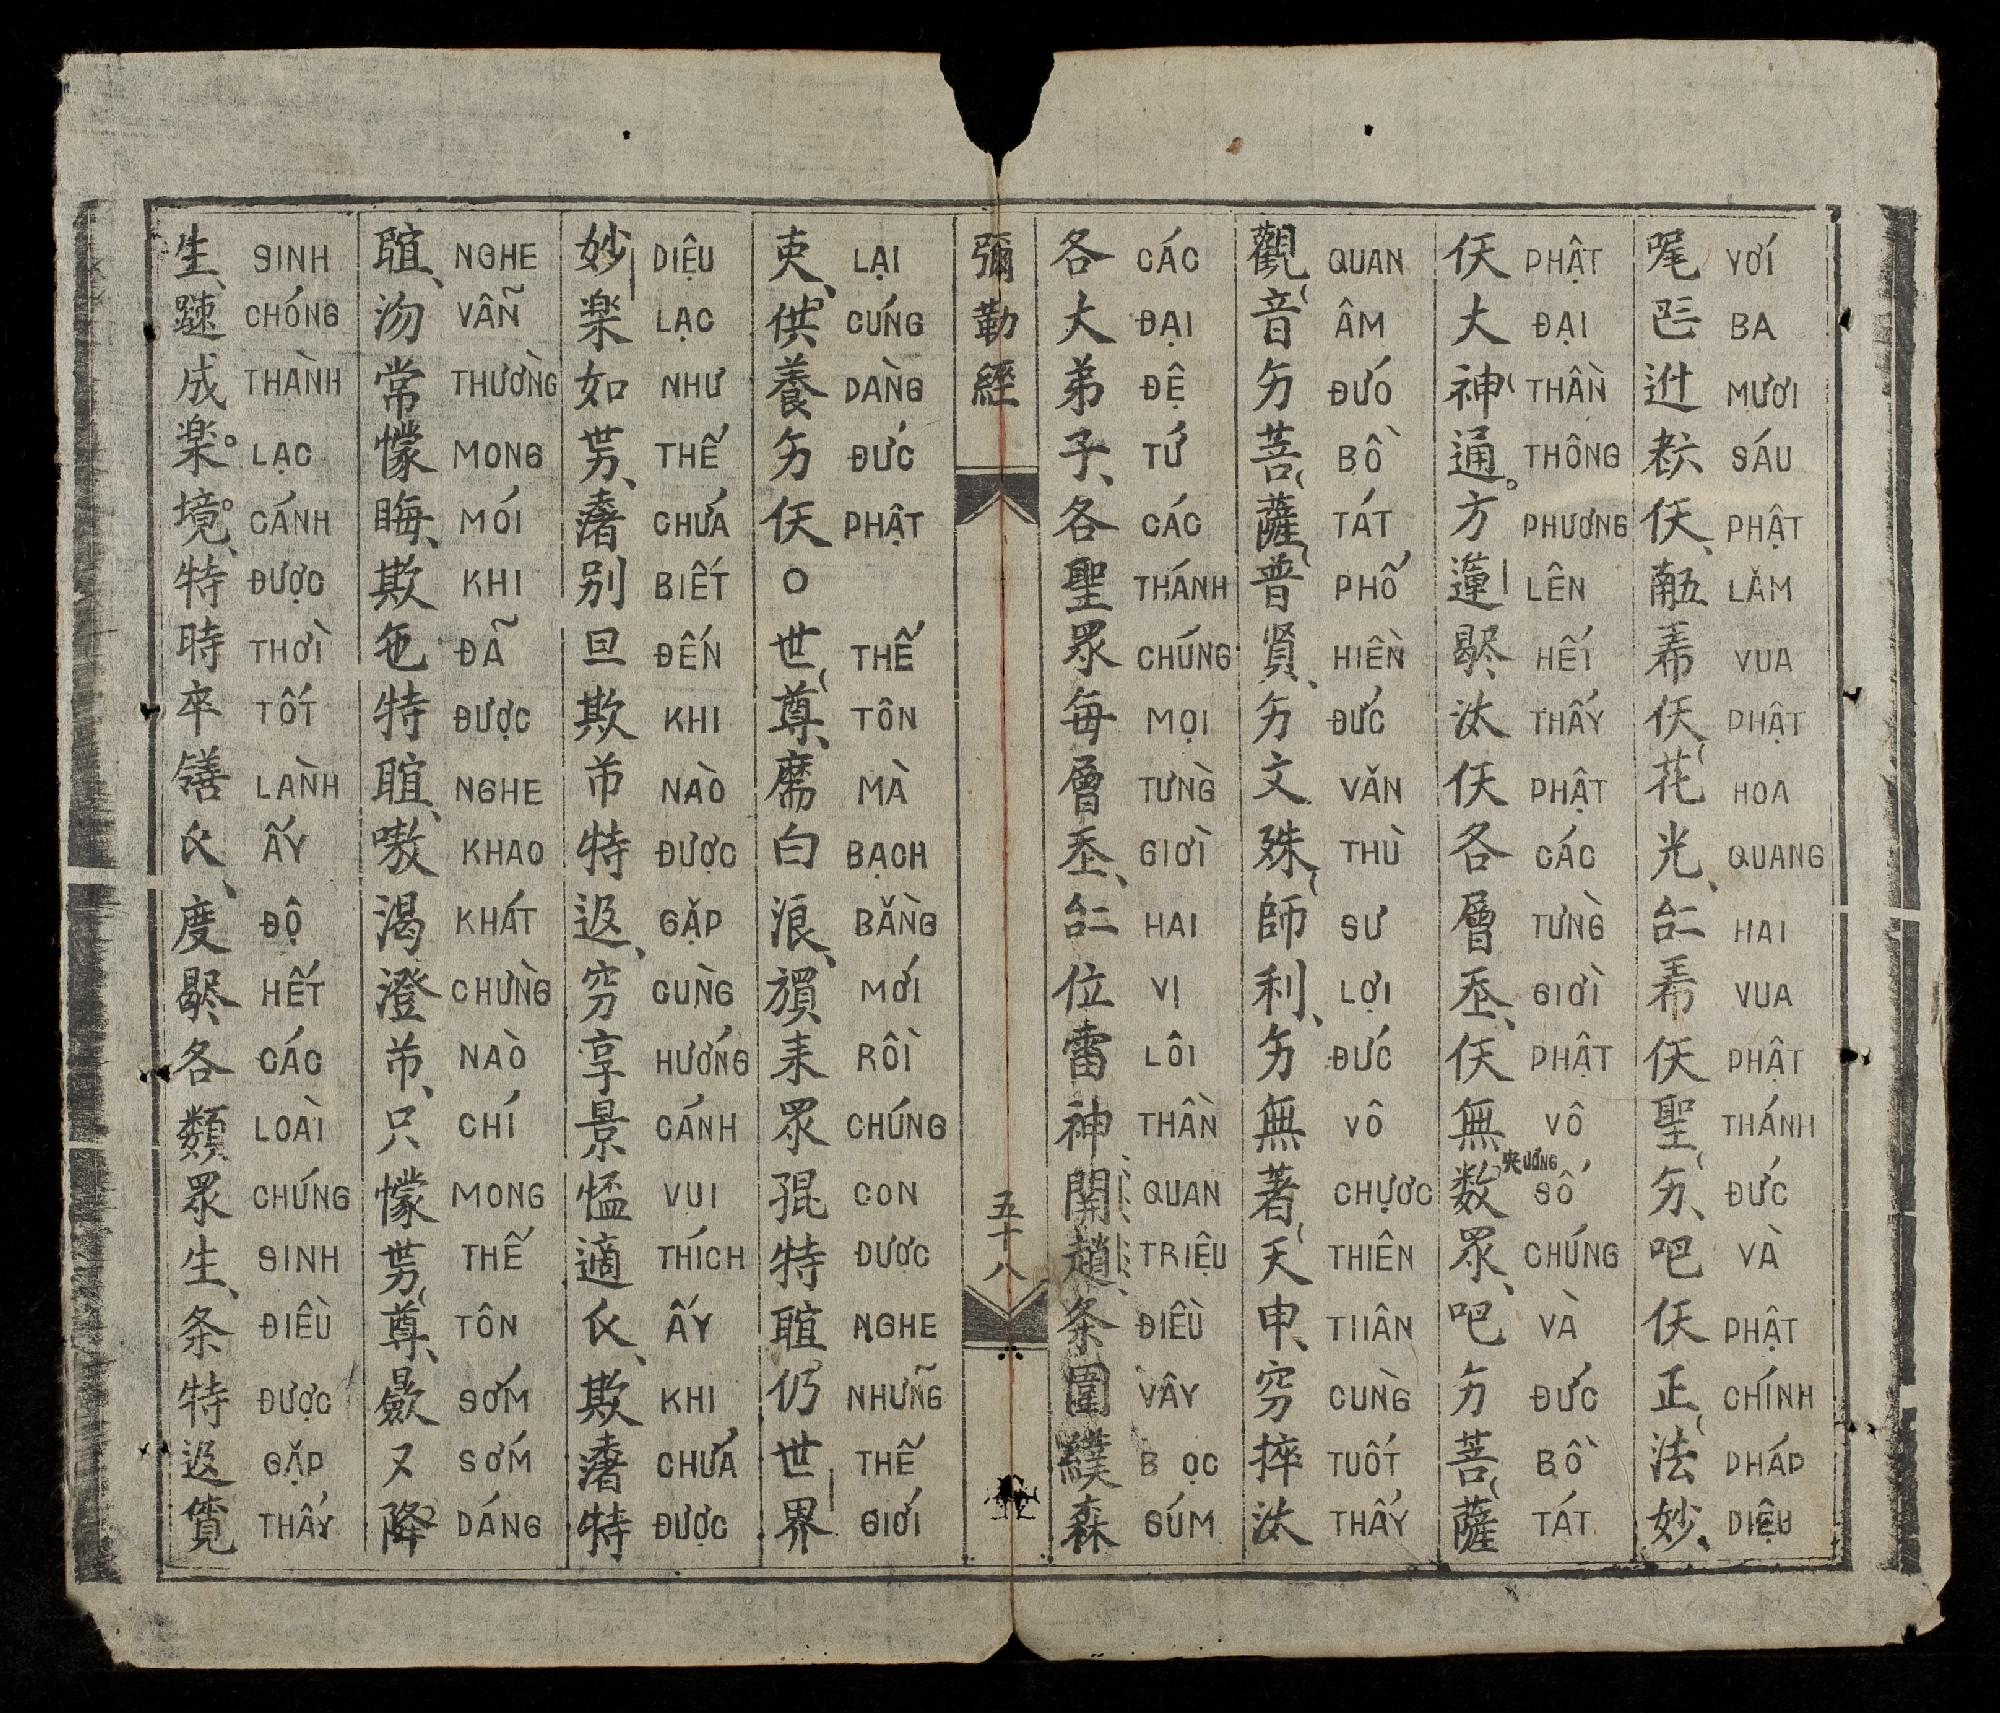 𠀧𨑮𦒹仸𠄻仸花光𠄩仸聖吧仸正法妙
VỚI BA MƯƠI SÁU PHẬT LĂM VUA PHẬT HOA QUANG HAI VUA PHẬT THÁNH ĐỨC VÀ PHẬT CHÍNH PHÁP DIỆU
仸大神通方蓮汰仸各層仸無数眾吧菩薩
PHẬT ĐẠI THẦN THÔNG PHƯƠNG LÊN HẾT THẤY PHẬT CÁC TỪNG GIỜI PHẬT VÔ SỐ CHÚNG VÀ ĐỨC BỒ TÁT
觀音菩薩普賢文殊師利無著天申窮捽汰
QUAN ÂM ĐỨC BỒ TÁT PHỔ HIỀN ĐỨC VĂN THÙ SƯ LỢI ĐỨC VÔ CHƯỢC THIÊN THÂN CÙNG TUỐT THẨY
各大弟子各聖眾每層𠄩位雷神關趙条圍纀森
CÁC ĐẠI ĐỆ TỬ CÁC THÁNH CHÚNG MỌI TỪNG GIỜI HAI VỊ LÔI THẦN QUAN TRIỆU ĐIỀU VÂY BỌC SÚM
彌勒經
五十八
吏供養仸〇世尊白浪耒眾特𦖑仍世界
LẠI CÚNG DÀNG ĐỨC PHẬT THẾ TÔN MÀ BẠCH BẰNG MỚI RỒI CHÚNG CON ĐƯỢC NGHE NHỮNG THẾ GIỚI
妙楽如渚別旦欺特返享景適欺渚特
DIỆU LẠC NHƯ THẾ CHỬA BIẾT ĐẾN KHI NÀO ĐƯỢC GẶP CÙNG HƯỞNG CẢNH VUI THÍCH ẤY KHI CHỬA ĐƯỢC
𦖑沕常懞晦欺㐌特𦖑嗷渴澄只懞尊又降
NGHE VẪN THƯỜNG MONG MỎI KHI ĐÃ ĐƯỢC NGHE KHAO KHÁT CHỪNG NÀO CHỈ MONG THẾ TÔN SỚM SỚM DÁNG
生成楽境特時卒度各類眾生条特返覓
SINH CHÓNG THÀNH LẠC CẢNH ĐƯỢC THỜI TỐT LÀNH ẤY ĐỘ HẾT CÁC LOÀI CHÚNG SINH ĐIỀU ĐƯỢC GẶP THẤY